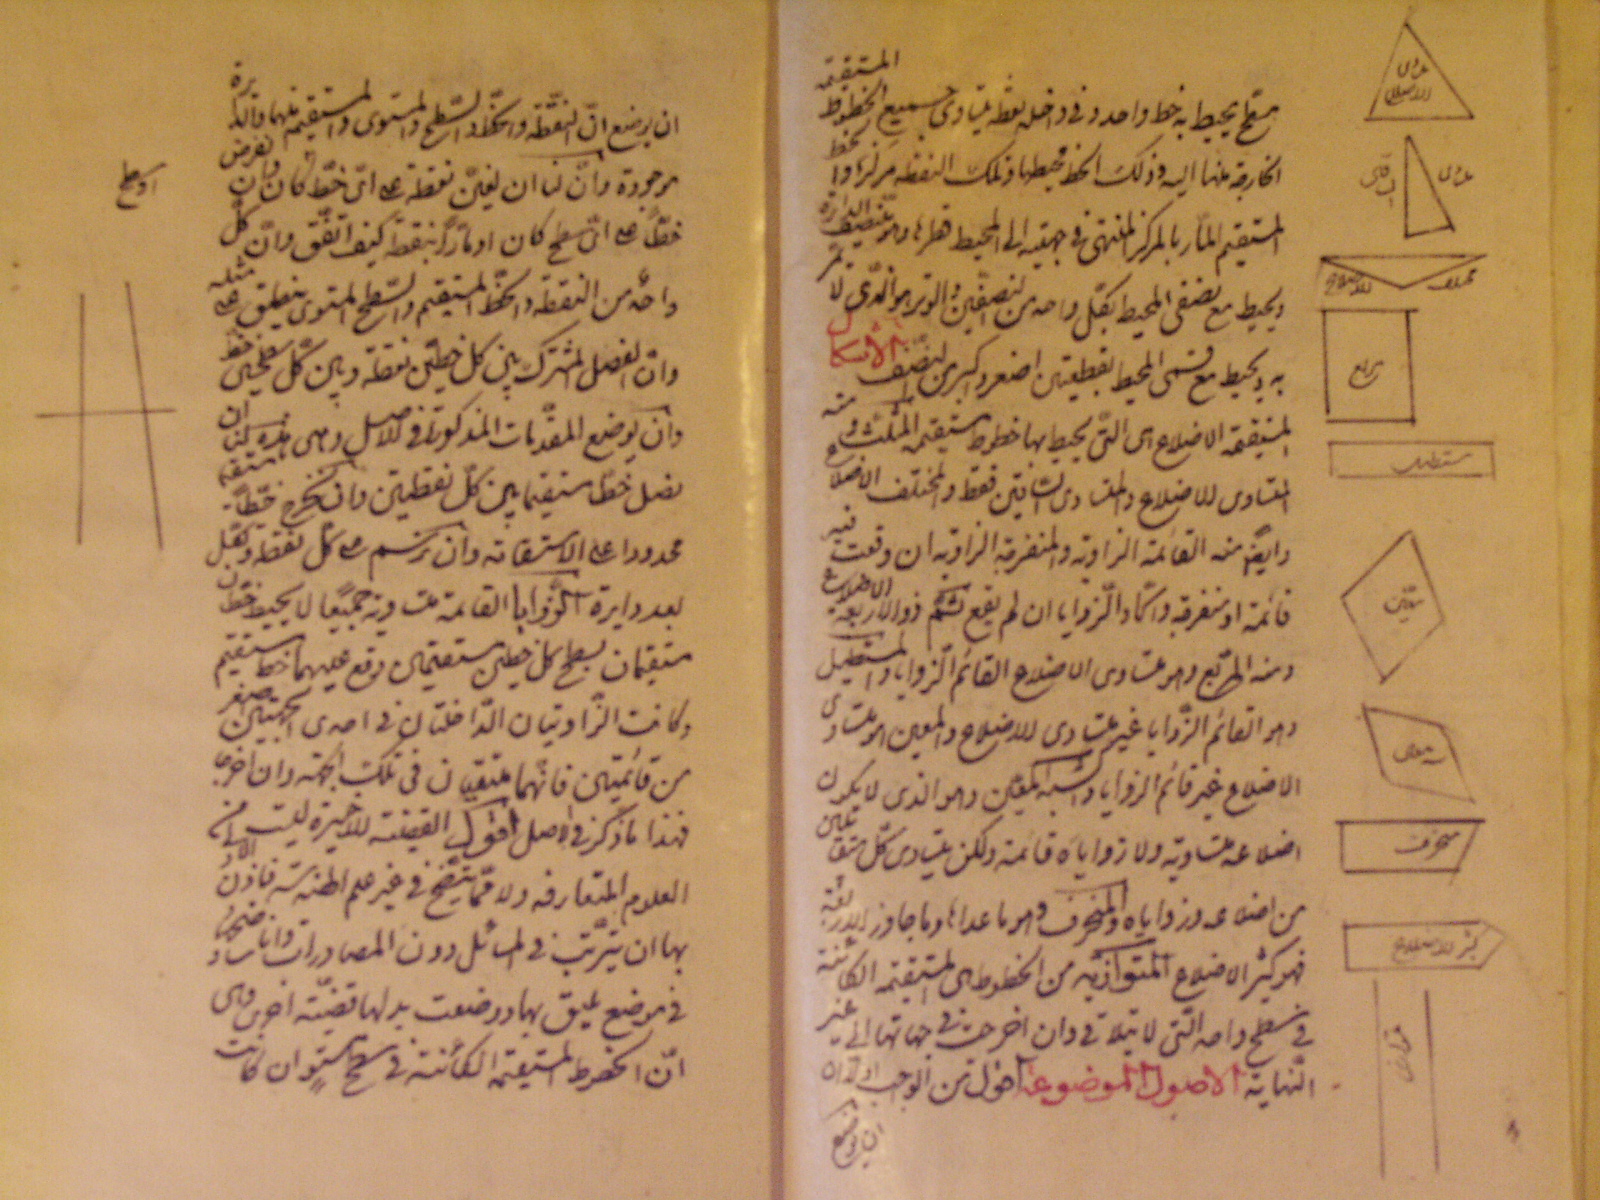 سطح يحيط به خط واحد وفي داخله نقطة يتساوى جميع الخطوط المستقيمة
الخارجة منها اليه وذلك الخط محيطها وتلك النقطة مركزها والخط
المستقيم المار بالمركز المنتهى في جهتيه الى المحيط قطرها وهو ينصف الدائرة
ويحيط مع نصفى المحيط بكل واحد من النصفين والوتر هو الذى لا يمر
به ويحيط مع قسمى المحيط بقطعتين اصغر واكبر من النصف الاشكال
المستقيمة الاضلاع هى التى يحيط بها خطوط مستقيمة المثلث و منه
المتساوى الاضلاع والمتساوى الساقين فقط والمختلف الاضلاع
وايضا منه القائمة الزاوية والمنفرجة الزاوية ان وقعت فيه
قائمة او منفرجة والحاد الزوايا ان لم يقع ثم ذو الاربعة الاضلاع
ومنه المربع وهو المتساوى الاضلاع القائم الزوايا والمستطيل
وهو القائم الزوايا غير متساوى الاضلاع والمعين هو متساوى
الاضلاع غير قائم الزوايا والشبيه بالمعين وهو الذى لا يكون
اضلاعه متساوية ولا زواياه قائمة ولكن يتساوى كل متقابلين
من اضلاعه وزواياه والمنحرف وهو ما عداها وما جاوز الاربعة
فهو كثير الاضلاع المتوازية من الخطوط هى المستقيمة الكائنة
في سطح واحد التى لا يتلاقى وان اخرجت في جهاتها الى غير
النهاية الاصول الموضوعة اقول من الواجب اولا
ان يوضع
متساوى الاضلاع
متساوى الساقين
مختلف الاضلاع
مربع
مستطيل
معين
منحرف
كثير الاضلاع
متوازى
ان يوضع ان النقطة والخط والسطح والمستوى والمستقيم منهما والدائرة
موجودة وان لنا ان نعين نقطة على اى خط كان وان نفرض
خطا على اى سطح كان او مارا بنقطة كيف اتفق وان كل
واحد من النقطة والخط المستقيم والسطح المستوى ينطبق على مثله
وان الفصل المشترك بين كل خطين نقطة وبين كل سطحين خط
وان يوضع المقدمات المذكورة في الاصل وهى هذه لنا ان
نصل خطا مستقيما بين كل نقطتين وان نخرج خطا مستقيما
محدودا على الاستقامة وان نرسم على كل نقطة وبكل
بعد دايرة الزوايا القائمة متساوية جميعا لا يحيط خطان
مستقيمان بسطح كل خطين مستقيمين وقع عليهما خط مستقيم
وكانت الزاويتان الداخلتان في احدى الجهتين اصغر
من قائمتين فانهما يلتقيان في تلك الجهة وان اخرجا
فهذا ما ذكر في الاصل اقول القضية الاخيرة ليست من
العلوم المتعارفة ولا مما يتضح في غير علم الهندسة فاذن الاولى
بها ان يترتب في المسائل دون المصادرات وانا ساوضحها
في موضع يليق بها ووضعت بدلها قضية اخرى وهى
ان الخطوط المستقيمة الكائنة في سطح مستو ان كانت